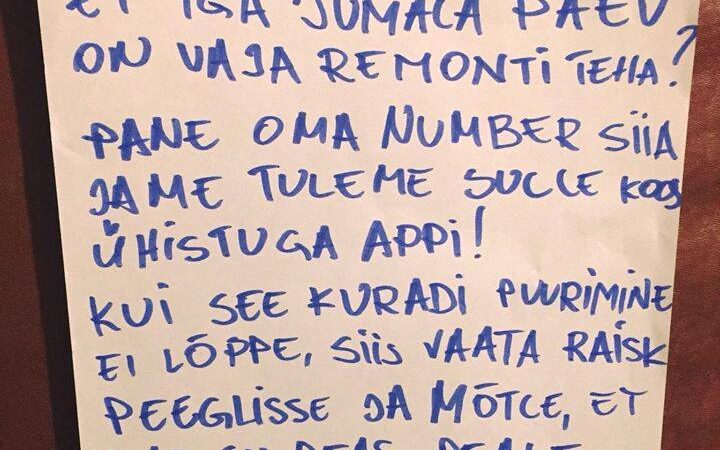 ET IGA JUMALA PÄEV
ON VAJA REMONTI TEHA?
PANE OMA NUMBER SIIA
JA ME TULEME SULLE KOOS
ÜHISTUGA APPI!
KUI SEE KURADI PUURIMINE
EI LÕPPE, SIIS VAATA RAISK
PEEGLISSE JA MÕTLE, ET
PEAS PEALE